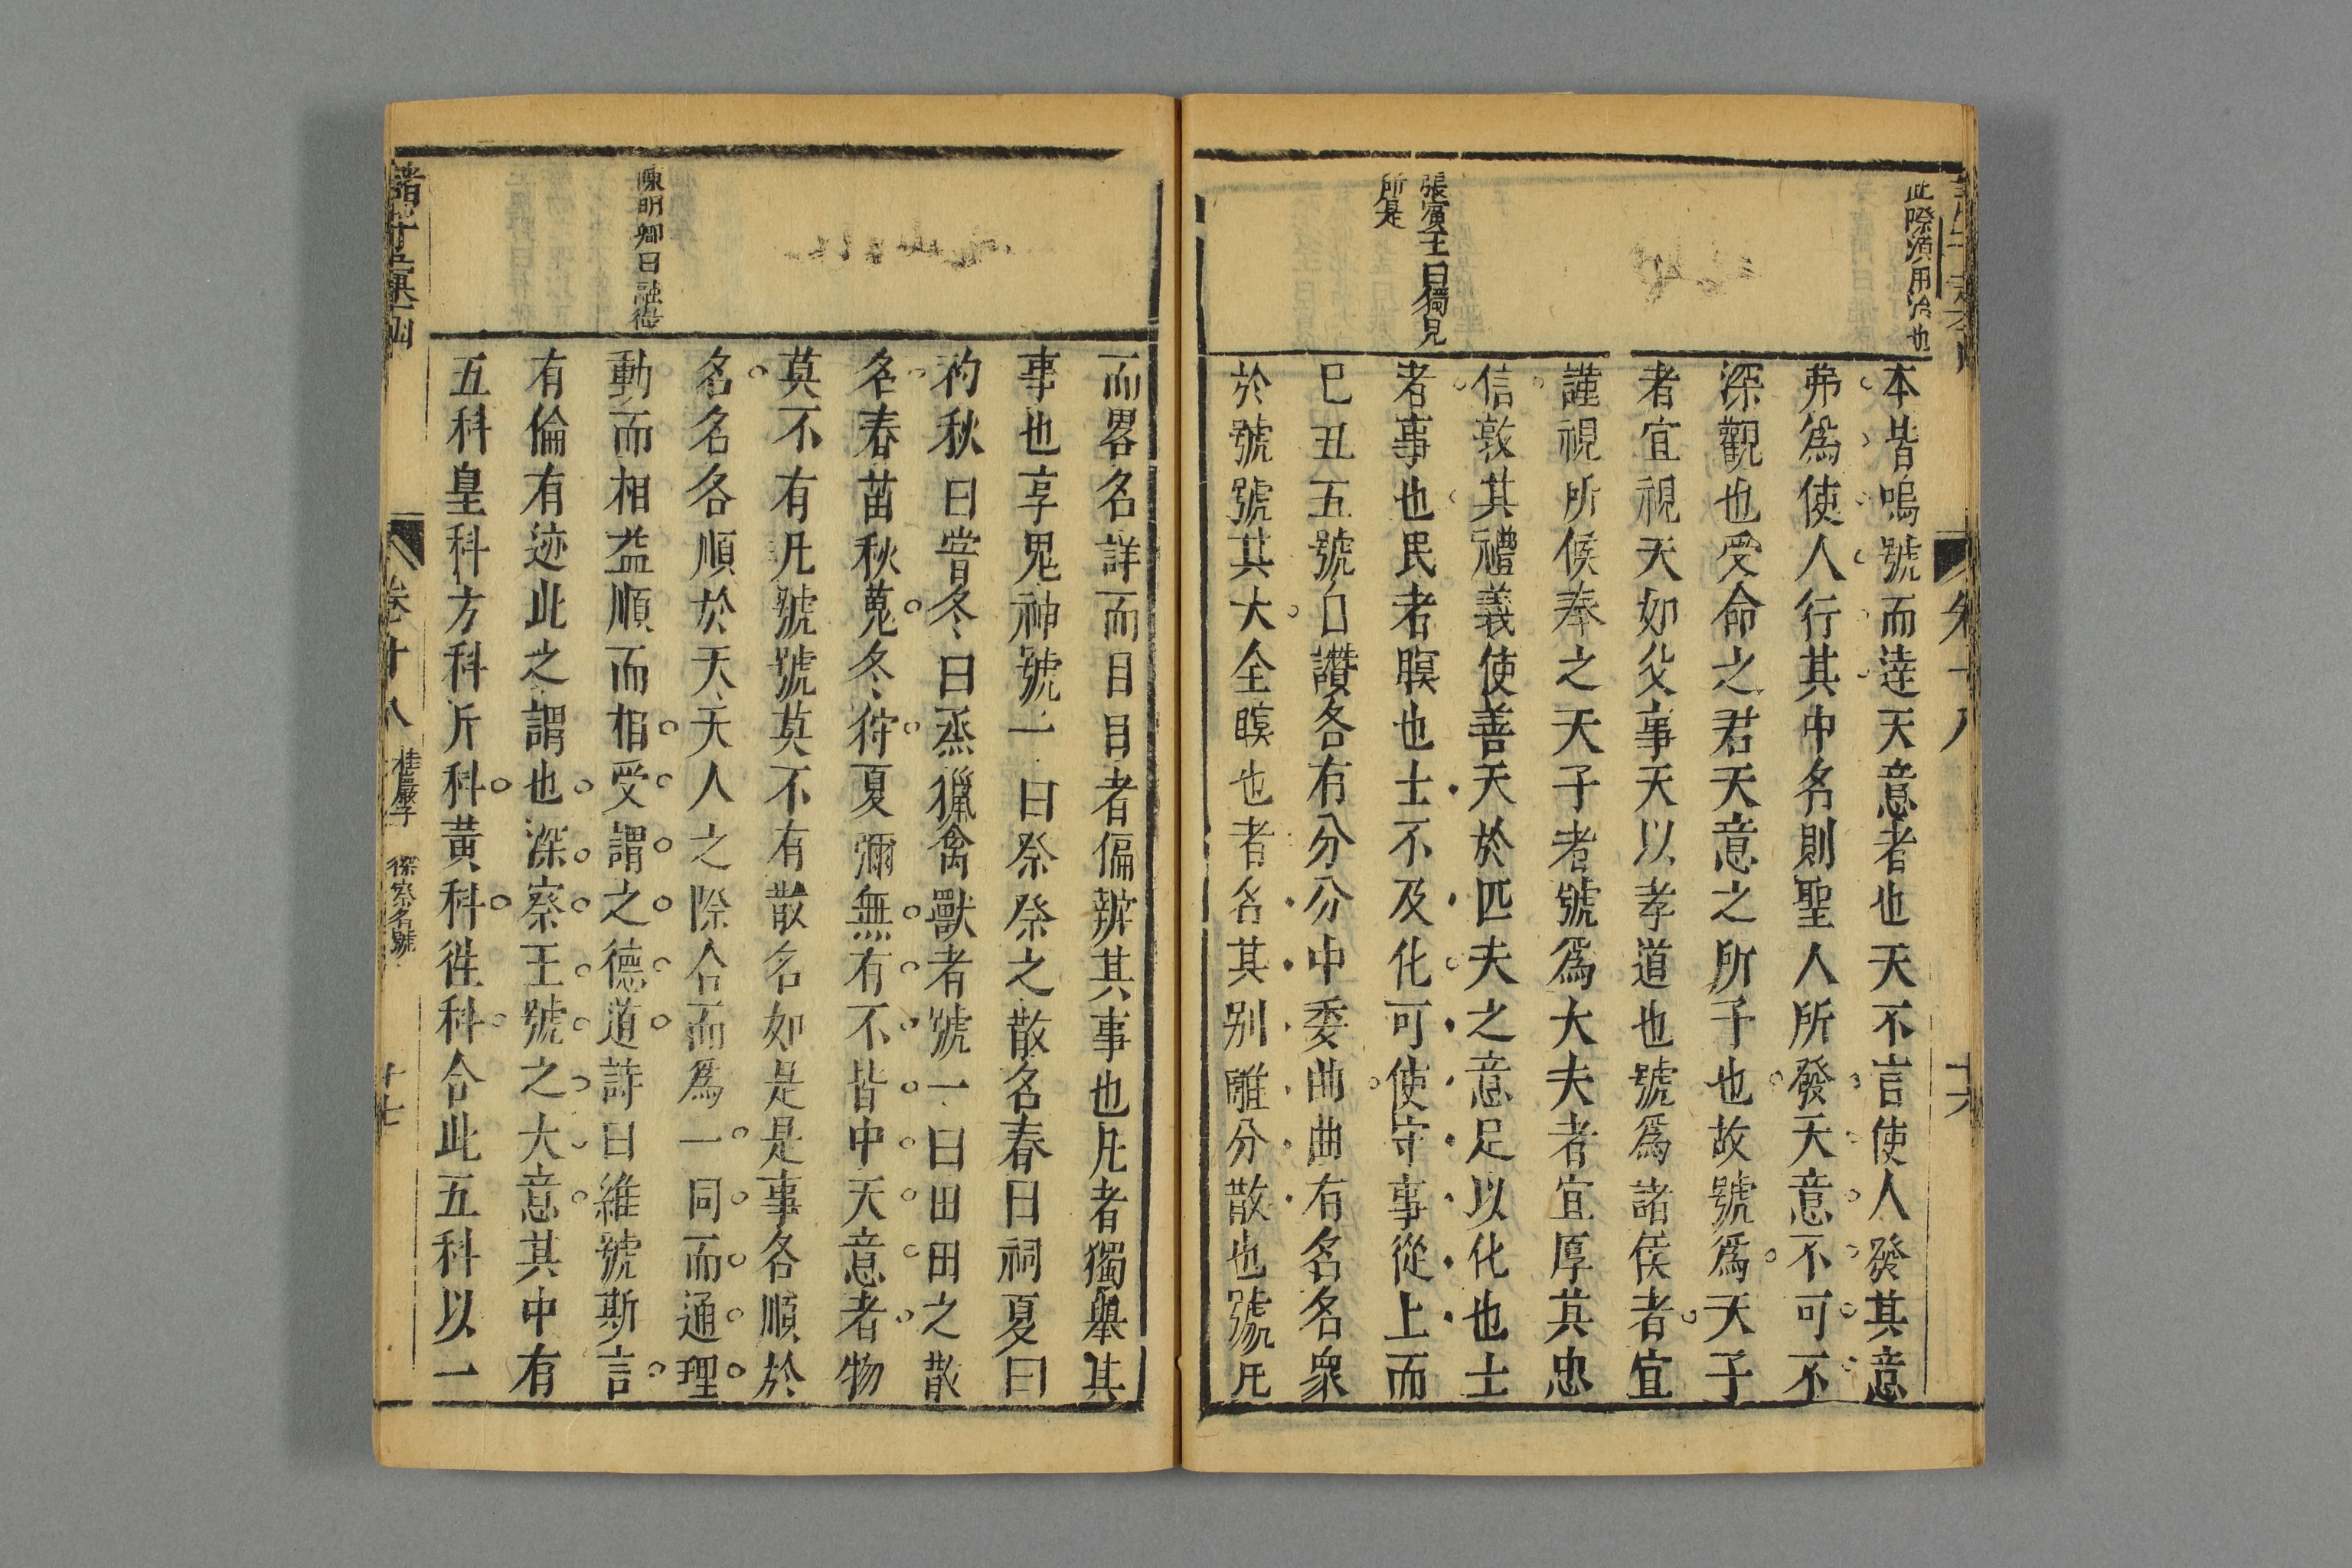 此際須用治也
本皆鳴號而達天意者也天不言使人發其意
弗爲使人行其中名則聖人所發天意不可不
深觀也受命之君天意之所予也故號爲天子
者宜視天如父事天以孝道也號爲諸侯者宜
謹視所候奉之天子者號爲大夫者宜厚其忠
信敦其禮義使善天於匹夫之意足以化也士
張賓王曰獨見
所是
者事也民者瞑也士不及化可使守事從上而
巳丑五號自讚各有分分中委曲曲有名名衆
於號號其大全瞑也者名其别離分散也號凡
而畧名詳而目目者偏辨其事也凡者獨舉其
事也享鬼神號一曰祭祭之散名春曰祠夏曰
礿秋曰嘗冬曰烝獵禽獸者號一曰田田之散
名春苗秋蒐冬狩夏獮無有不皆中天意者物
莫不有凡號號莫不有散名如是是事各順於
名名各順於天天人之際合而爲一同而通理
陳明卿曰融德
動而相益順而相受謂之德道詩曰維號斯言
有倫有迹此之謂也深察王號之大意其中有
五科皇科方科斤科黃科徃科合此五科以一
卷十八 桂巖子 深察名號 十七